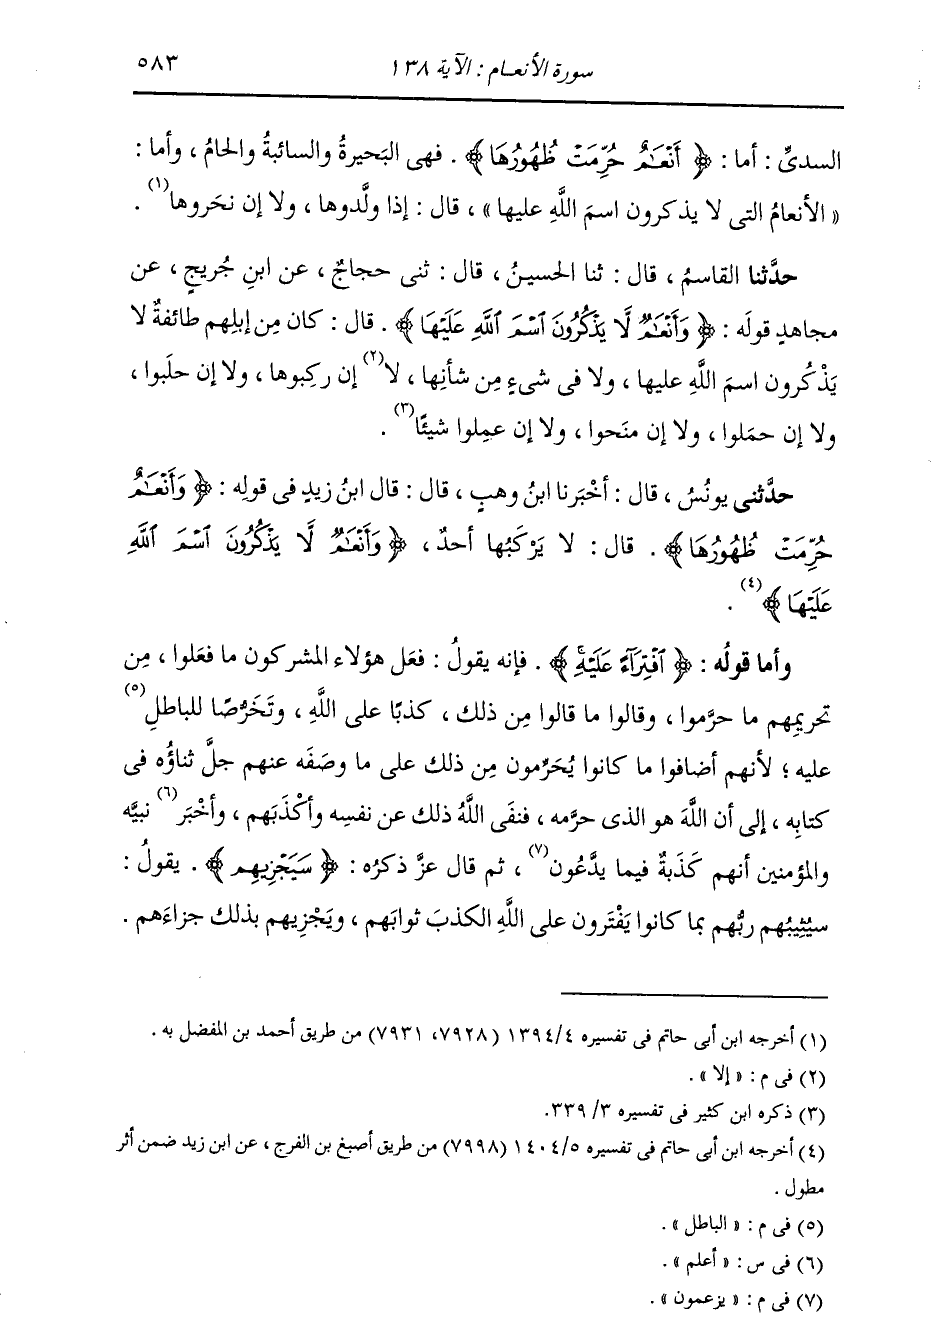 سورة الأنعام : الآية ١٣٨
٥٨٣
السدىِّ : أما : ﴿ أَنْعَٰمٌ حُرِّمَتْ ظُهُورُهَا ﴾ . فهى البَحيرةُ والسائبةُ والحامُ ، وأما :
« الأنعامُ التى لا يذكرون اسمَ اللَّهِ عليها » ، قال : إذا ولَّدوها ، ولا إن نحَروها(١) .
حدَّثنا القاسمُ ، قال : ثنا الحسينُ ، قال : ثنى حجاجٌ ، عن ابنِ جُريجٍ ، عن
مجاهدٍ قولَه : ﴿ وَأَنْعَٰمٌ لَّا يَذْكُرُونَ ٱسْمَ ٱللَّهِ عَلَيْهَا ﴾ . قال : كان مِن إبلِهم طائفةٌ لا
يَذْكُرون اسمَ اللَّهِ عليها ، ولا فى شىءٍ مِن شأنِها ، لا(٢) إن ركِبوها ، ولا إن حلَبوا ،
ولا إن حمَلوا ، ولا إن منَحوا ، ولا إن عمِلوا شيئًا(٣) .
حدَّثنى يونُسُ ، قال : أخْبَرنا ابنُ وهبٍ ، قال : قال ابنُ زيدٍ فى قولِه : ﴿ وَأَنْعَٰمٌ
حُرِّمَتْ ظُهُورُهَا ﴾ . قال : لا يَرْكَبُها أحدٌ ، ﴿ وَأَنْعَٰمٌ لَّا يَذْكُرُونَ ٱسْمَ ٱللَّهِ
عَلَيْهَا ﴾(٤) .
وأما قولُه : ﴿ ٱفْتِرَآءً عَلَيْهِ ﴾ . فإنه يقولُ : فعَل هؤلاء المشركون ما فعَلوا ، مِن
تحريمِهم ما حرَّموا ، وقالوا ما قالوا مِن ذلك ، كذبًا على اللَّهِ ، وتَخَرُّصًا للباطلِ(٥)
عليه ؛ لأنهم أضافوا ما كانوا يُحَرِّمون مِن ذلك على ما وصَفَه عنهم جلَّ ثناؤُه فى
كتابِه ، إلى أن اللَّهَ هو الذى حرَّمه ، فنفَى اللَّهُ ذلك عن نفسِه وأكْذَبَهم ، وأخْبَر(٦) نبيَّه
والمؤمنين أنهم كَذَبةٌ فيما يدَّعُون(٧) ، ثم قال عزَّ ذكرُه : ﴿ سَيَجْزِيهِم ﴾ . يقولُ :
سيُثِيبُهم ربُّهم بما كانوا يَفْتَرون على اللَّهِ الكذبَ ثوابَهم ، ويَجْزِيهم بذلك جزاءَهم .
(١) أخرجه ابن أبى حاتم فى تفسيره ١٣٩٤/٤ (٧٩٢٨، ٧٩٣١) من طريق أحمد بن المفضل به .
(٢) فى م : « إلا » .
(٣) ذكره ابن كثير فى تفسيره ٣/ ٣٣٩.
(٤) أخرجه ابن أبى حاتم فى تفسيره ١٤٠٤/٥ (٧٩٩٨) من طريق أصبغ بن الفرج ، عن ابن زيد ضمن أثر
مطول .
(٥) فى م : « الباطل » .
(٦) فى س : « أعلم » .
(٧) فى م : « يزعمون » .